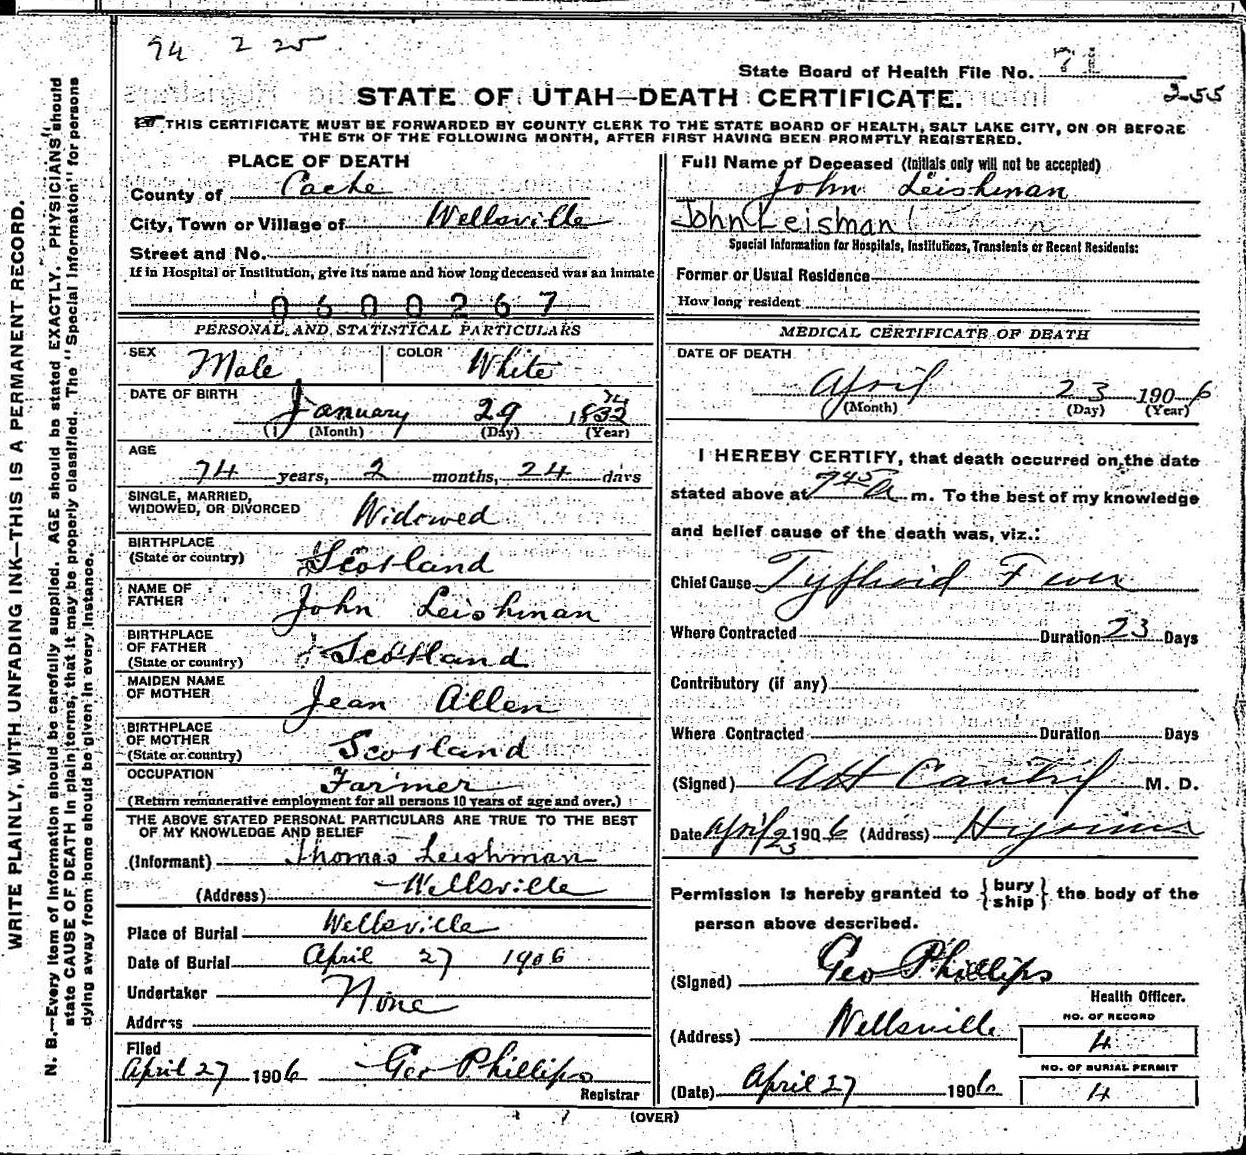 94 2 25
State Board of Health File No. 71
255
STATE OF UTAH—DEATH CERTIFICATE.
THIS CERTIFICATE MUST BE FORWARDED BY COUNTY CLERK TO THE STATE BOARD OF HEALTH, SALT LAKE CITY, ON OR BEFORE
THE 5TH OF THE FOLLOWING MONTH, AFTER FIRST HAVING BEEN PROMPTLY REGISTERED.
WRITE PLAINLY, WITH UNFADING INK—THIS IS A PERMANENT RECORD.
N. B.—Every item of information should be carefully supplied. AGE should be stated EXACTLY. PHYSICIANS should
state CAUSE OF DEATH in plain terms, that it may be properly classified. The "Special Information" for persons
dying away from home should be given in every instance.
PLACE OF DEATH
County of Cache
City, Town or Village of Wellsville
Street and No.
If in Hospital or Institution, give its name and how long deceased was an inmate
0600267
PERSONAL AND STATISTICAL PARTICULARS
SEX Male COLOR White
DATE OF BIRTH
January 29 1832
(Month) (Day) (Year)
AGE
74 years, 2 months, 24 days
SINGLE, MARRIED,
WIDOWED, OR DIVORCED Widowed
BIRTHPLACE
(State or country) Scotland
NAME OF
FATHER John Leishman
BIRTHPLACE
OF FATHER
(State or country) Scotland
MAIDEN NAME
OF MOTHER Jean Allen
BIRTHPLACE
OF MOTHER
(State or country) Scotland
OCCUPATION Farmer
(Return remunerative employment for all persons 10 years of age and over.)
THE ABOVE STATED PERSONAL PARTICULARS ARE TRUE TO THE BEST
OF MY KNOWLEDGE AND BELIEF
(Informant) Thomas Leishman
(Address) Wellsville
Place of Burial Wellsville
Date of Burial April 27 1906
Undertaker None
Address
Filed
April 27 1906 Geo Phillips
Registrar
Full Name of Deceased (Initials only will not be accepted)
John Leishman
John Leisman
Special Information for Hospitals, Institutions, Transients or Recent Residents:
Former or Usual Residence
How long resident
MEDICAL CERTIFICATE OF DEATH
DATE OF DEATH
April 23 1906
(Month) (Day) (Year)
I HEREBY CERTIFY, that death occurred on the date
stated above at 945 a m. To the best of my knowledge
and belief cause of the death was, viz.:
Chief Cause Typhoid Fever
Where Contracted Duration 23 Days
Contributory (if any)
Where Contracted Duration Days
(Signed) M. D.
Date April 23 1906 (Address) Hyrum
Permission is hereby granted to {bury
ship} the body of the
person above described.
(Signed) Geo Phillips
Health Officer.
(Address) Wellsville
NO. OF RECORD
4
NO. OF BURIAL PERMIT
(Date) April 27 1906 4
(OVER)